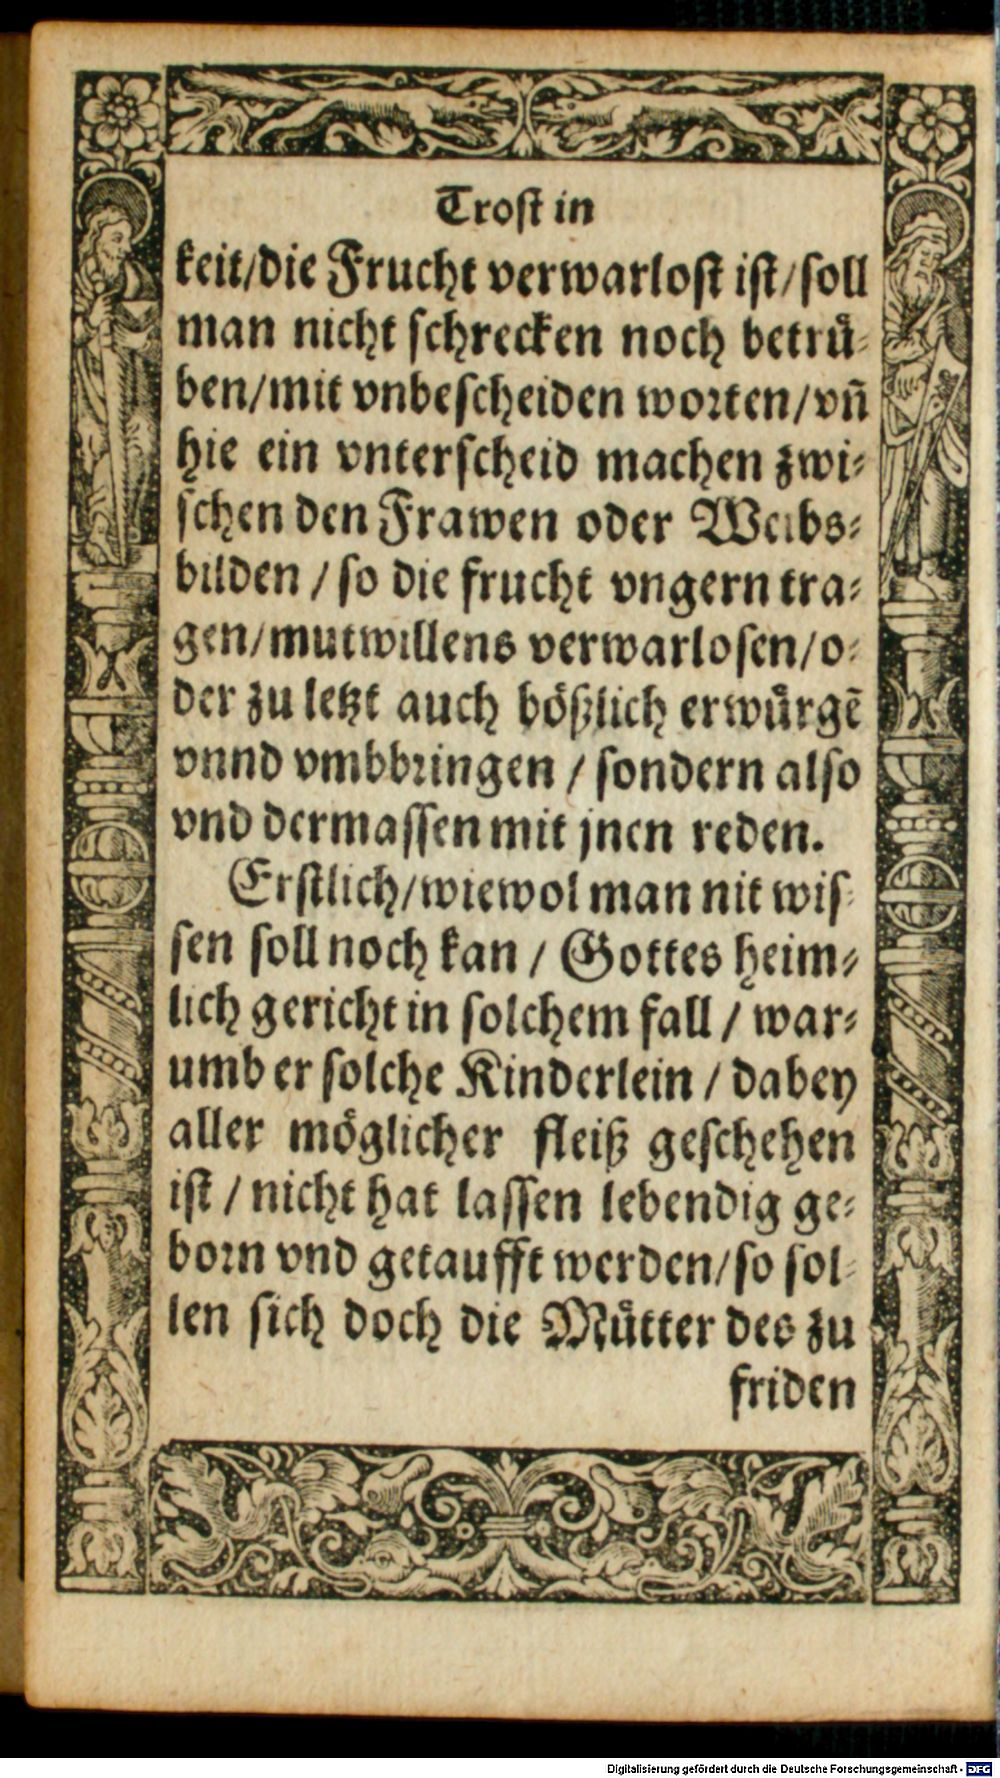 Trost in
keit/die Frucht verwarlost ist/soll
man nicht schrecken noch betruͤ-
ben/mit vnbescheiden worten/vn̄
hie ein vnterscheid machen zwi-
schen den Frawen oder Weibs-
bilden / so die frucht vngern tra-
gen/mutwillens verwarlosen/o-
der zu letzt auch bößlich erwuͤrgē
vnnd vmbbringen / sondern also
vnd dermassen mit jnen reden.
Erstlich/wiewol man nit wis-
sen soll noch kan / Gottes heim-
lich gericht in solchem fall / war-
umb er solche Kinderlein / dabey
aller möglicher fleiß geschehen
ist / nicht hat lassen lebendig ge-
born vnd getaufft werden/so sol-
len sich doch die Muͤtter des zu
friden
Digitalisierung gefördert durch die Deutsche Forschungsgemeinschaft - DFG